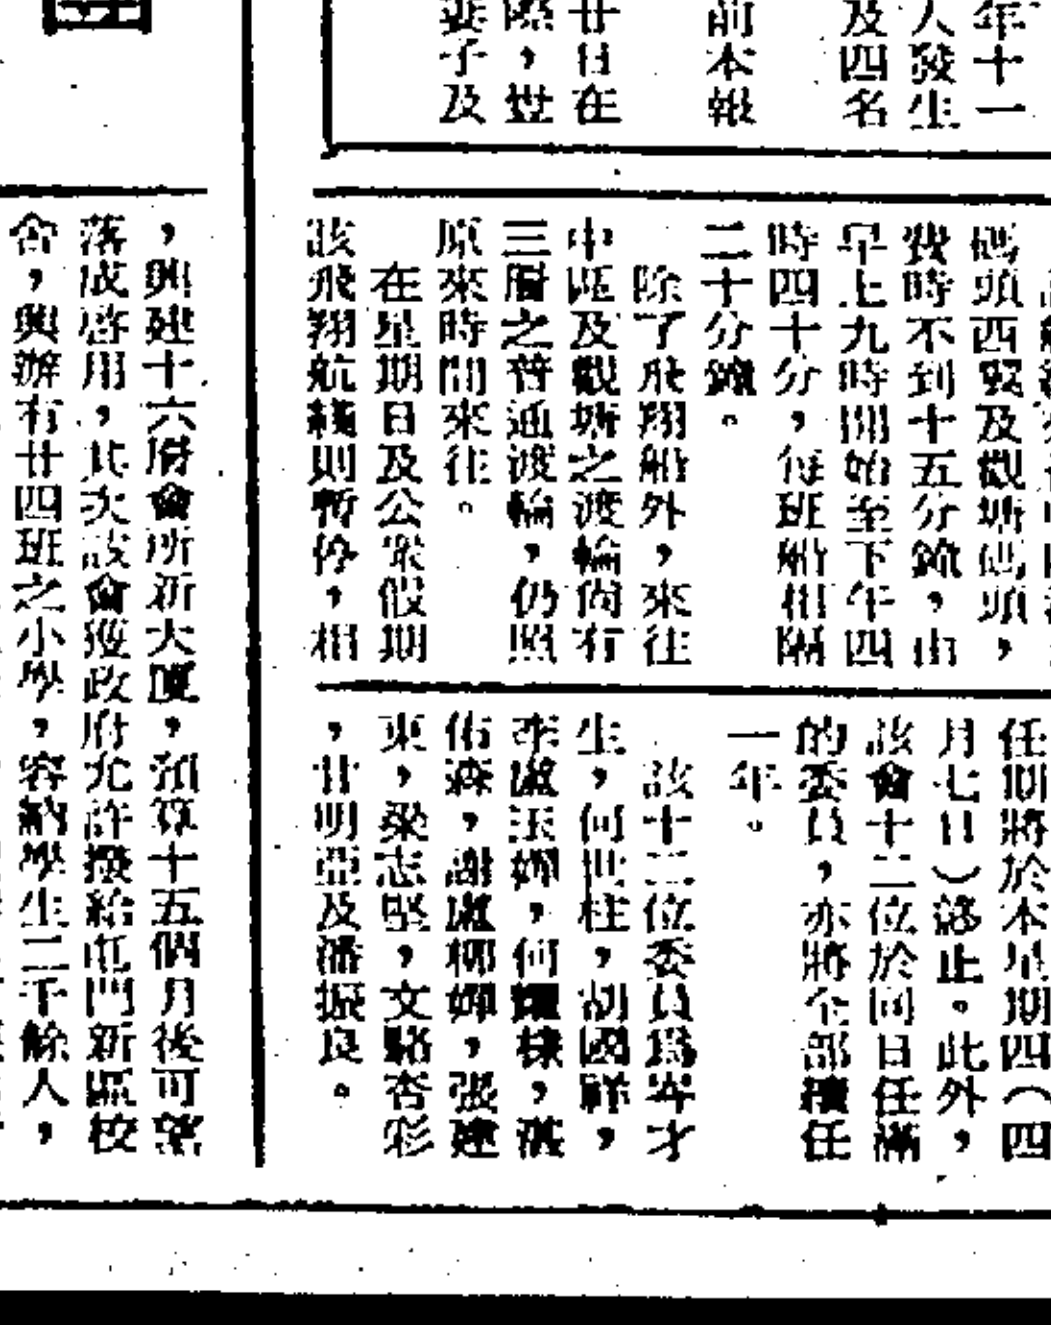 年十一
人發生
及四名
前本報
廿日在
際，世
妻子及
碼頭西翼及觀塘碼頭，
費時不到十五分鐘，由
早上九時開始至下午四
時四十分，每班船相隔
二十分鐘。
除了飛翔船外，來往
中區及觀塘之渡輪尚有
三層之普通渡輪，仍照
原來時間來往。
在星期日及公眾假期
該飛翔航綫則暫停，相
任期將於本星期四（四
月七日）終止。此外，
該會十二位於同日任滿
的委員，亦將全部續任
一年。
該十二位委員爲岑才
生，何世柱，胡國祥，
李盧玉嬋，何耀棣，湛
佑森，謝盧柳嬋，張建
東，梁志堅，文駱杏彩
，甘明亞及潘振良。
，興建十六層會所新大廈，預算十五個月後可望
落成啓用，其次該會獲政府允許撥給屯門新區校
舍，興辦有廿四班之小學，容納學生二千餘人，